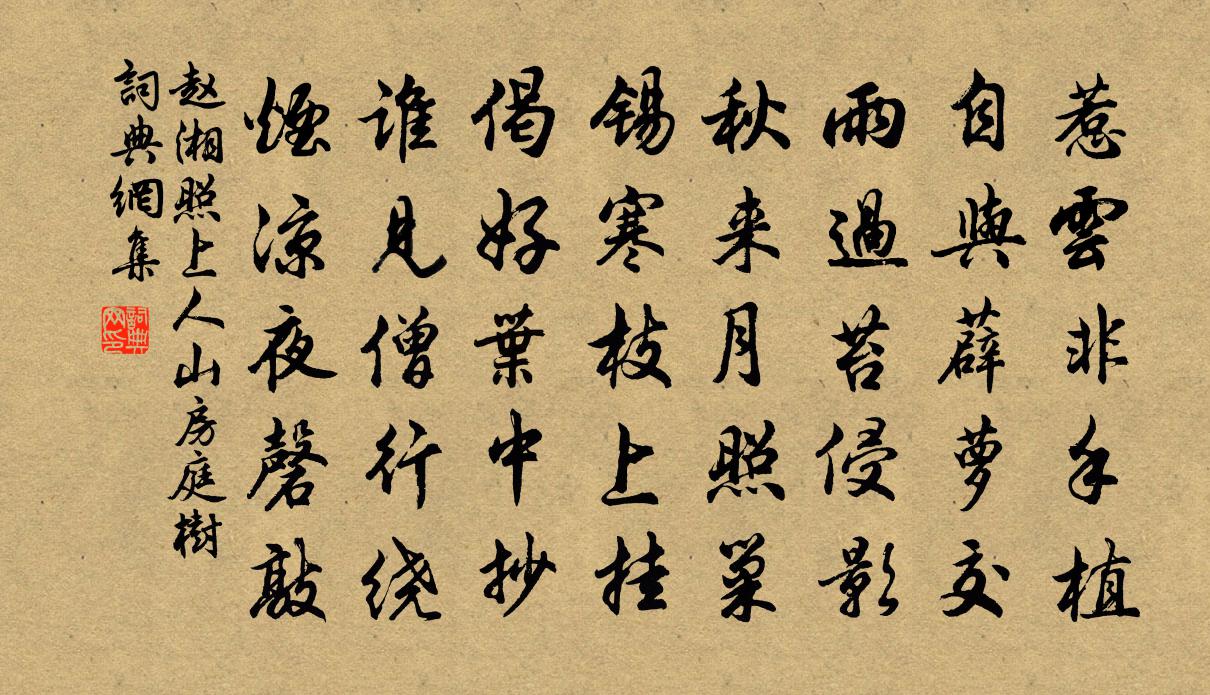 惹雲非手植
自與薜萝交
雨過苔侵影
秋来月照巢
錫寒枝上挂
偈好葉中抄
誰見僧行绕
煙凉夜磬敲
赵湘照上人山房庭樹
詞典網集
詞典
网印